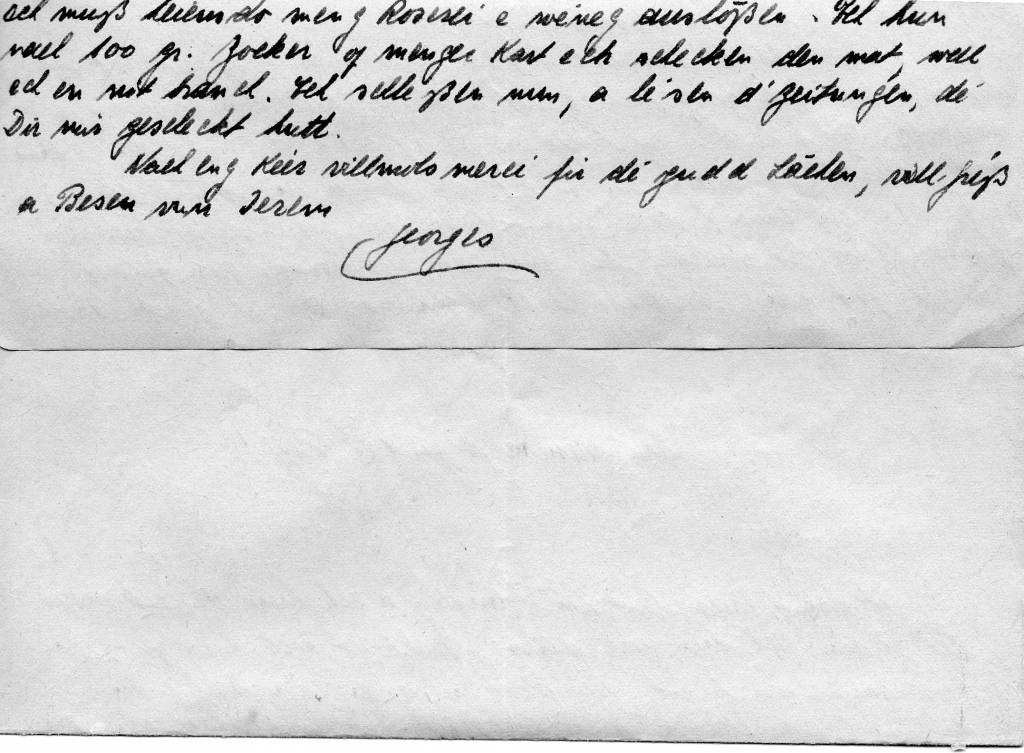 ech muß heiensdo meng Roserei e wéineg auslößen. Ech hun
nach 100 gr. Zocker op menger Kart ech schecken den mat, well
ech en net brauch. Ech schleßen nun, a lésen d'Zeitungen, dé
Dir mir gescheckt hutt.
Nach eng Kéer villmols merci fir dé gudd Saachen, vill Gréß
a Besen vun Jerem
Georges